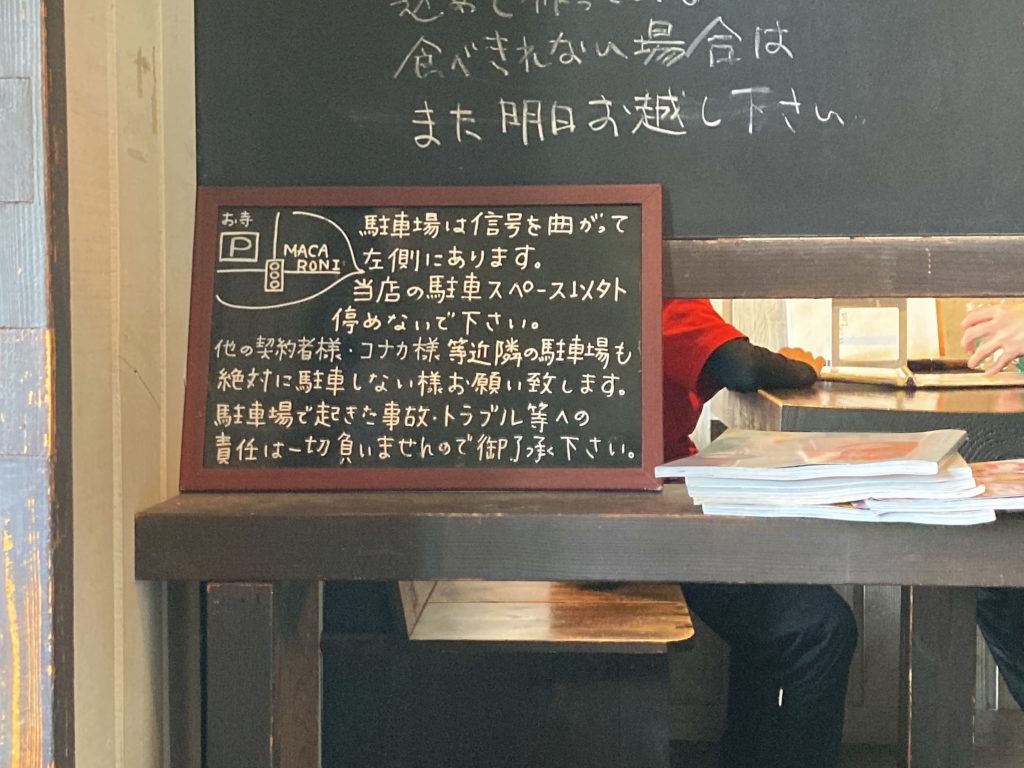 食べきれない場合は
また明日お越し下さい
お寺
P
MACA
RONI
駐車場は信号を曲がって
左側にあります。
当店の駐車スペース以外
停めないで下さい。
他の契約者様・コナカ様等近隣の駐車場も
絶対に駐車しない様お願い致します。
駐車場で起きた事故・トラブル等への
責任は一切負いませんので御了承下さい。